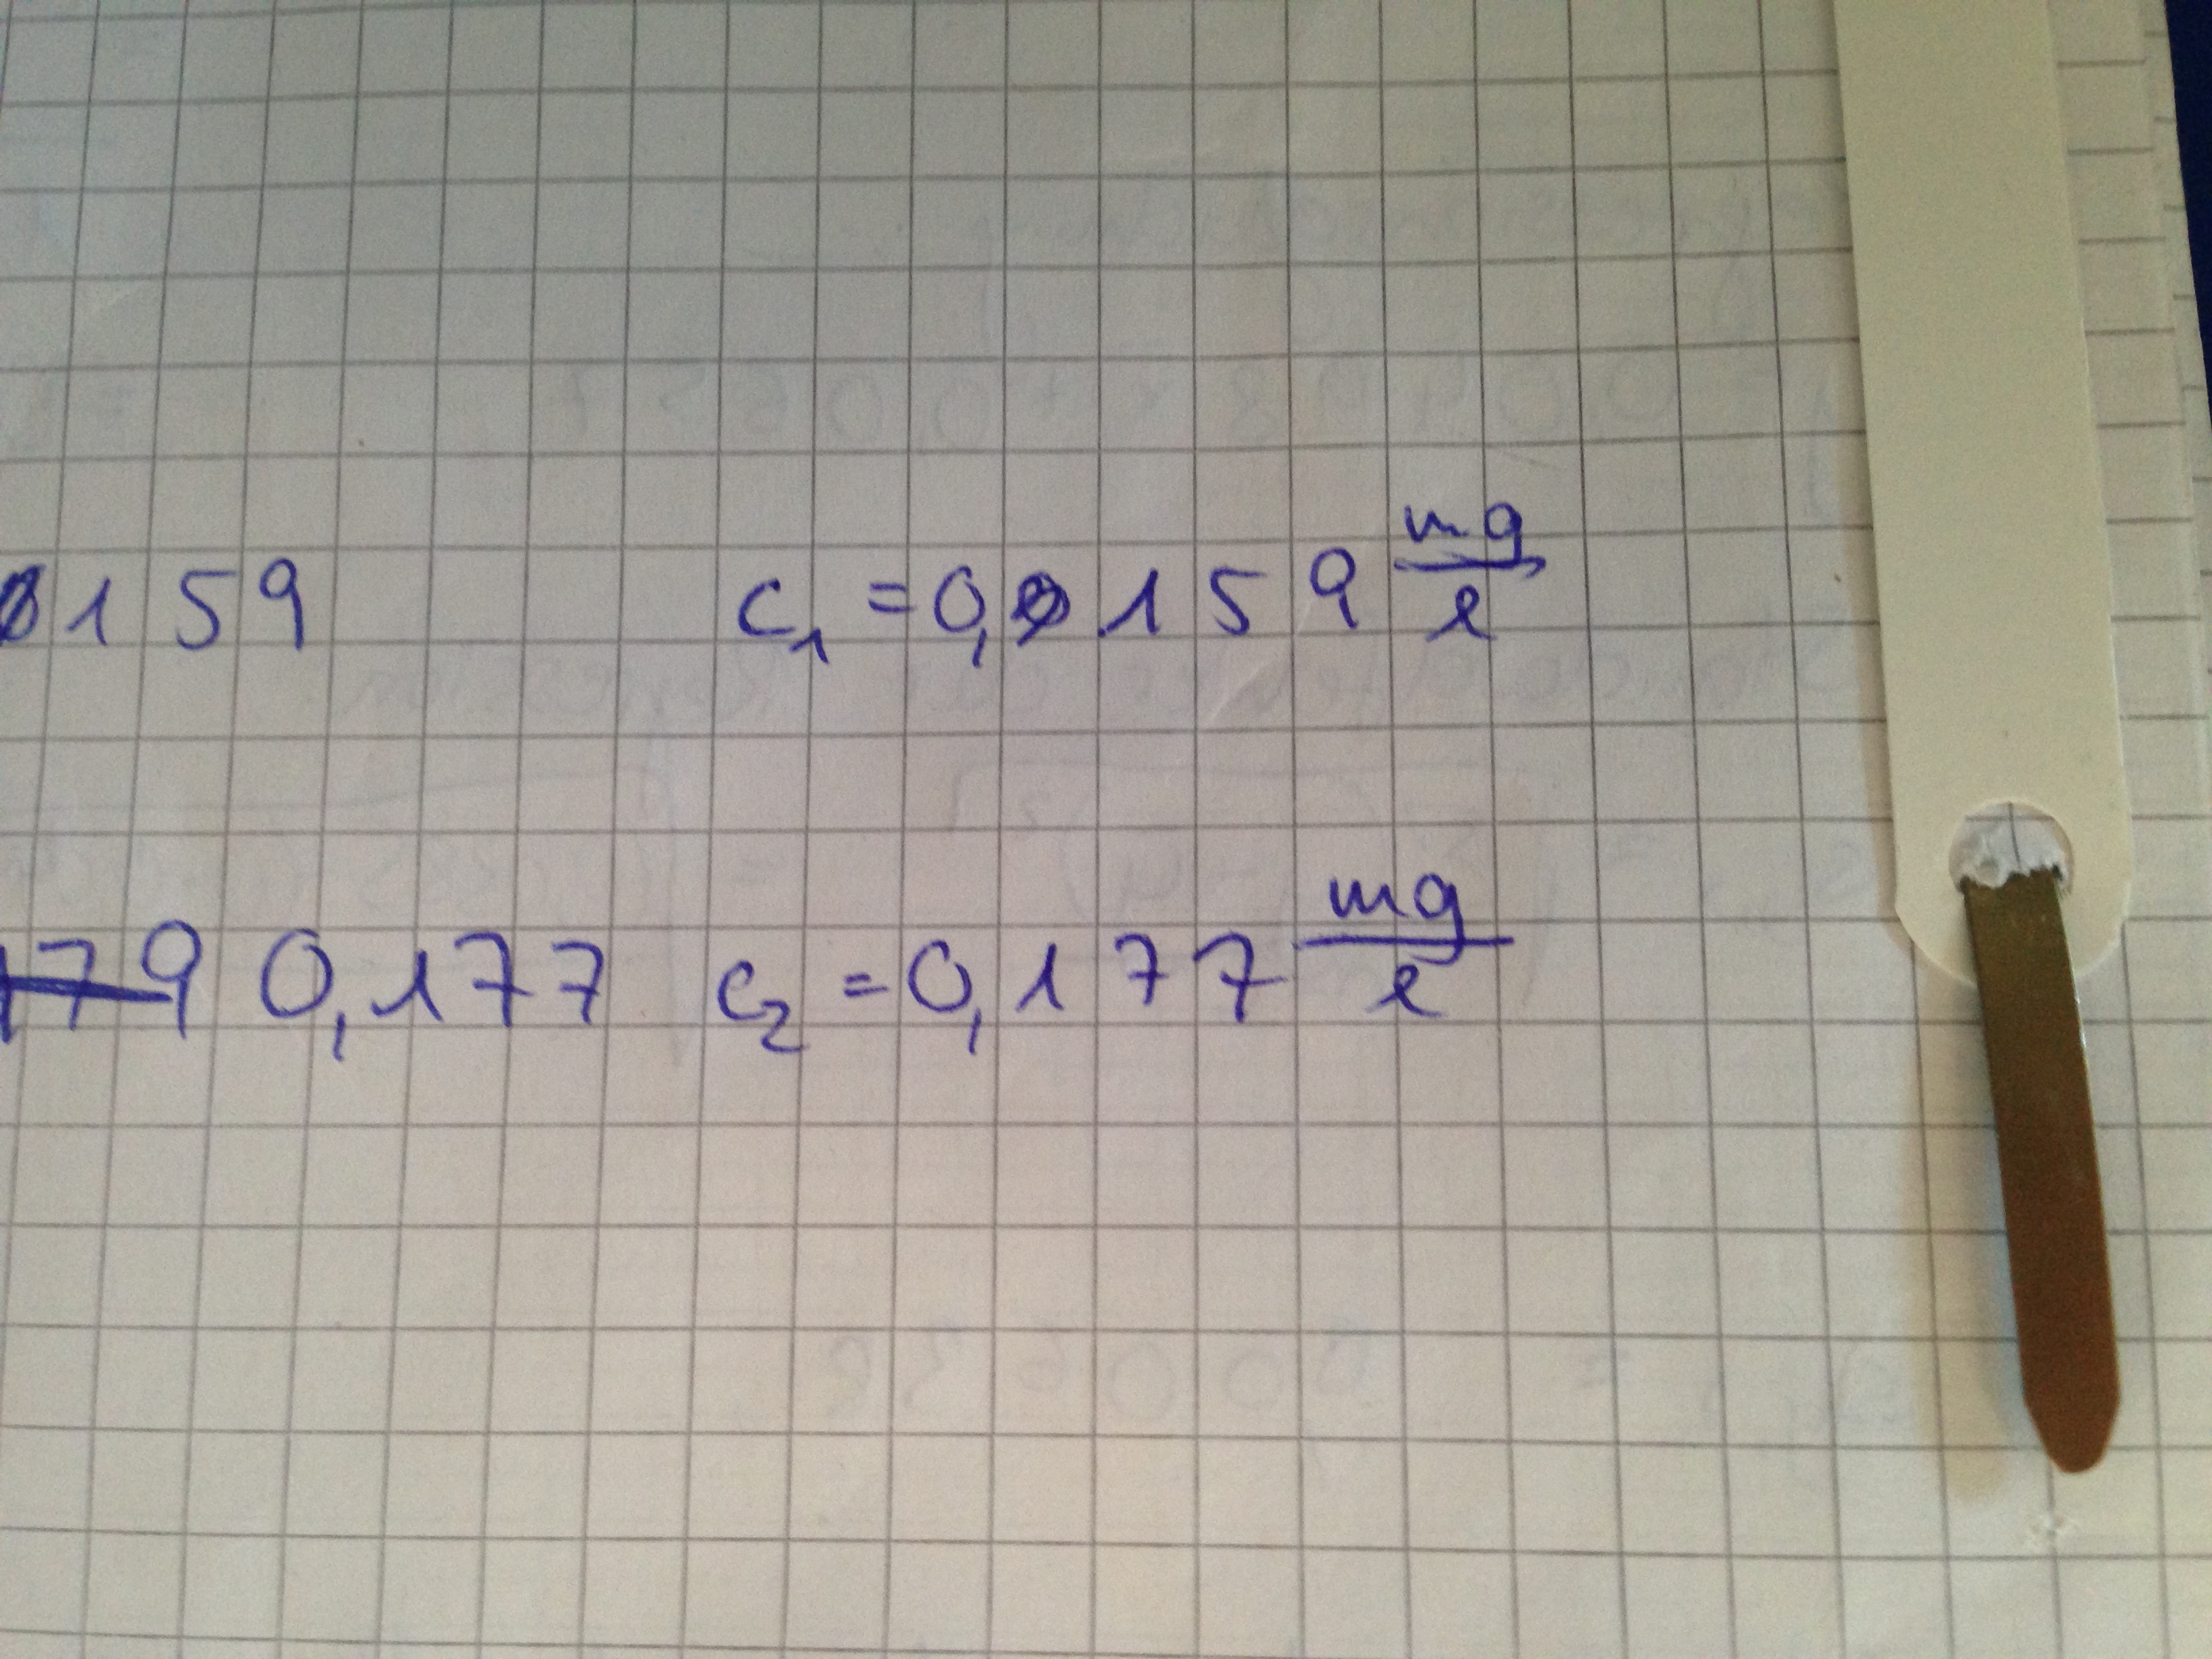 159 c₁ = 0,159 mg/l
0,177 c₂ = 0,177 mg/l